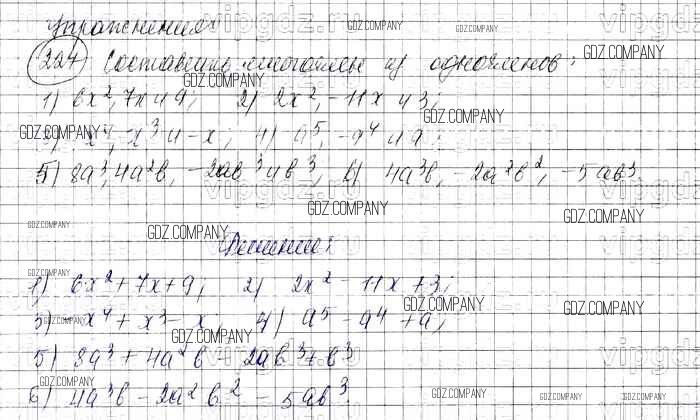 Упражнения:
224 Составить многочлен из одночленов:
1) 6x², 7x и 9; 2) 2x², -11x и 3;
x³ и -x; 4) a⁵, -a⁴ и a;
5) 8a³, 4a²b, -2ab³ и b³, 6) 4a³b, -2a²b², -5ab³.
Решение:
1) 6x² + 7x + 9; 2) 2x² - 11x + 3;
3) x⁴ + x³ - x; 4) a⁵ - a⁴ + a;
5) 8a³ + 4a²b - 2ab³ + b³
6) 4a³b - 2a²b² - 5ab³.
GDZ.COMPANY
vipgdz.ru